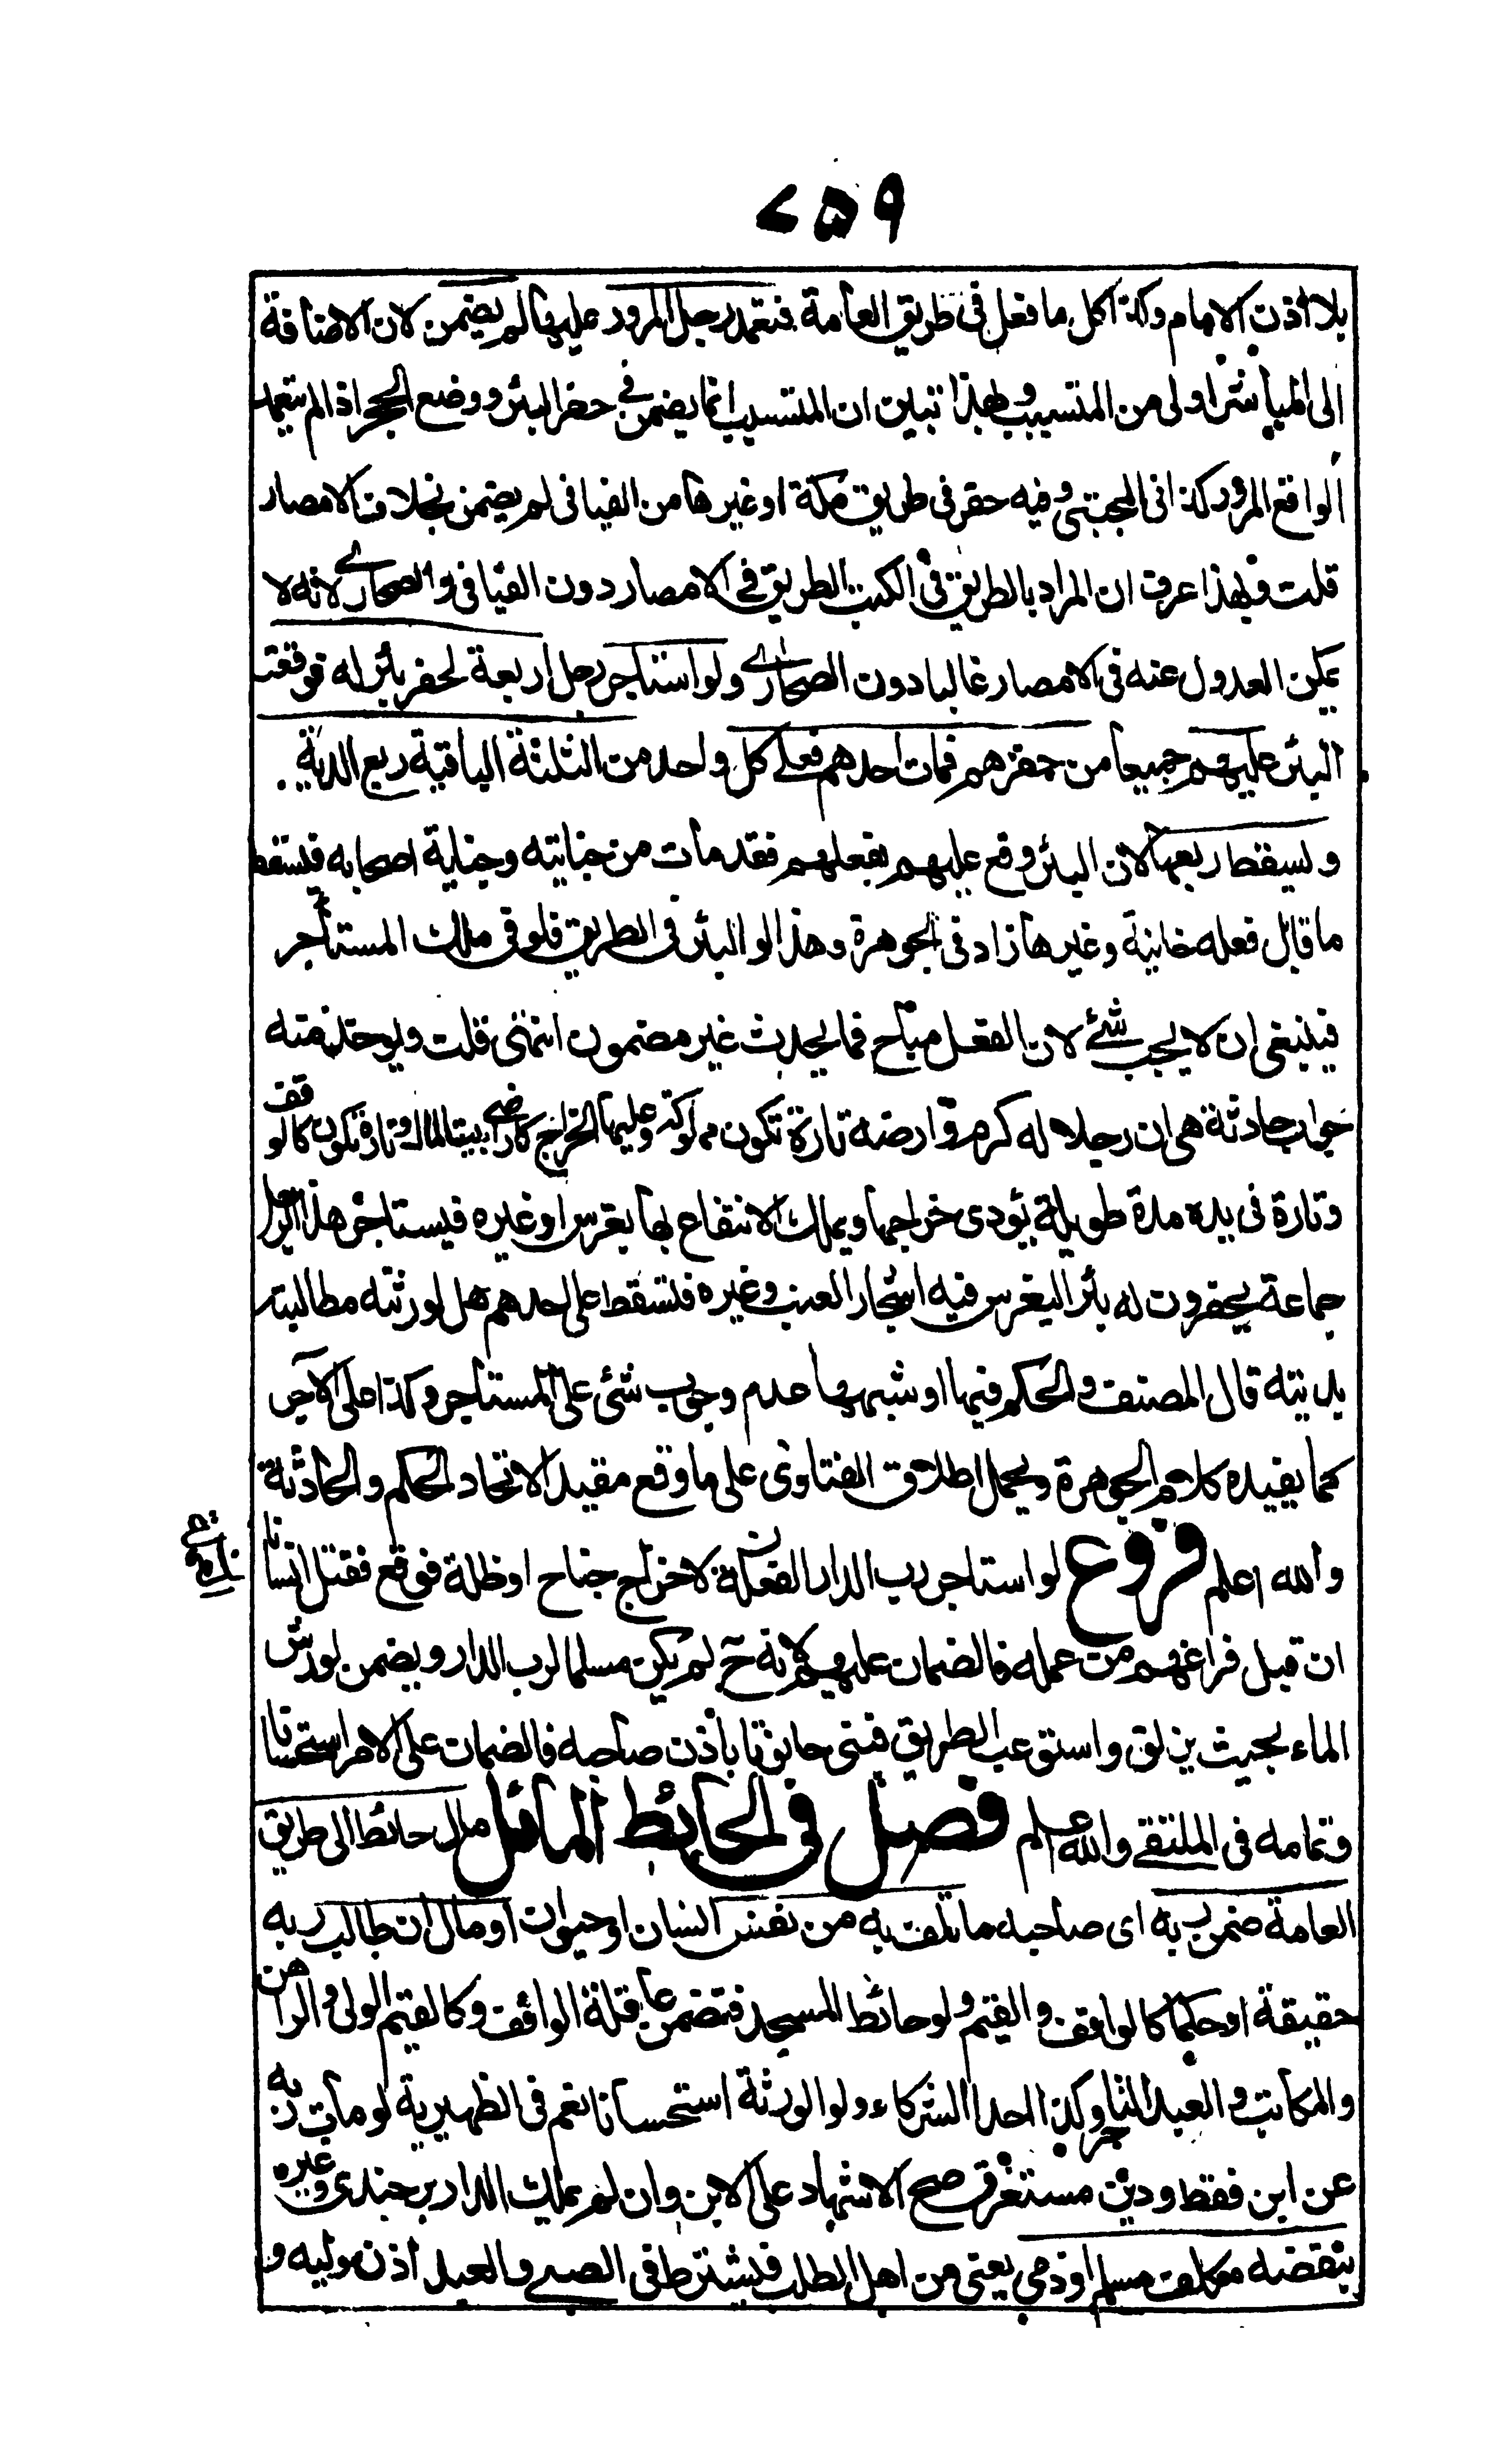 ٧٥٩
بلا اذن الامام وكذا كل ما فعل فى طريق العامة فتعمد رجل المرور عليها لم يضمن لان الاضافة
الى المباشر اولى من المتسبب وبهذا تبين ان المتسبب انما يضمن في حفر البئر ووضع الحجر اذا لم يتعمد
الواقع المرور كذا فى المجتبى وفيه حفر فى طريق مكة او غيرها من الفيافى لم يضمن بخلاف الامصار
قلت وبهذا عرف ان المراد بالطريق فى الكتب الطريق في الامصار دون الفيافى والصحارے لانه لا
يمكن العدول عنه فى الامصار غالبا دون الصحارے ولو استاجر رجل اربعة لحفر بئر له فوقعت
البئر عليهم جميعا من حفرهم فمات احدهم فعلے كل واحد من الثلثة الباقية ربع الدية
ويسقط ربعها لان البئر وقع عليهم بفعلهم فقد مات من جنايته وجناية اصحابه فيسقط
ما قابل فعله خانية وغيرها زاد فى الجوهرة وهذا لو البئر فى الطريق فلو فى ملك المستأجر
فينبغى ان لا يجب شئے لان الفعل مباح فما يحدث غير مضمون انتهى قلت ويوخذ منه
جواب حادثة هى ان رجلا له كرم وارضه تارة تكون مملوكة وعليها الخراج كاراضے بيت المال وتارة تكون كالوقف
وتارة فى يده مدة طويلة يؤدى خراجها ويملك الانتفاع بها بغرس او غيره فيستاجر هذا الرجل
جماعة يحفرون له بئرا ليغرس فيه اشجار العنب وغيره فتسقط على احدهم هل لورثته مطالبته
بديته قال المصنف والحكم فيها او شبهها عدم وجوب شئى على المستاجر وكذا على الآجر
كما يفيده كلام الجوهرة ويحمل اطلاق الفتاوى على ما وقع مقيدا لاتحاد الحكم والحادثة
والله اعلم فروع لو استاجر رب الدار الفعلة لاخراج جناح او ظلة فوقع فقتل انسانا
ان قبل فراغهم من عمله فالضمان عليهم لانه ح لم يكن مسلما لرب الدار ويضمن لو رش
الماء بحيث يزلق واستوعب الطريق فبنى حانوتا باذن صاحبه فالضمان على الامر استحسانا
وتمامه فى الملتقے والله اعلم فصل فى الحائط المائل مال حائط الى طريق
العامة ضمن ربه اى صاحبه ما تلف به من نفس انسان او حيوان او مال ان طالب ربه
حقيقة او حكما كالواقف والقيم ولو حائط المسجد فتضمن عاقلة الواقف وكالقيم الولى والراهن
والمكاتب والعبد التاجر وكذا احد الشركاء ولو الورثة استحسانا نعم فى الظهيرية لو مات ربه
عن ابن فقط ودين مستغرق صح الاشهاد على الابن وان لم يملك الدار برجندى وغيره
بنقضه مكلف مسلم او ذمي يعنى من اهل الطلب فيشترط فى الصبے والعبد اذن وليه و